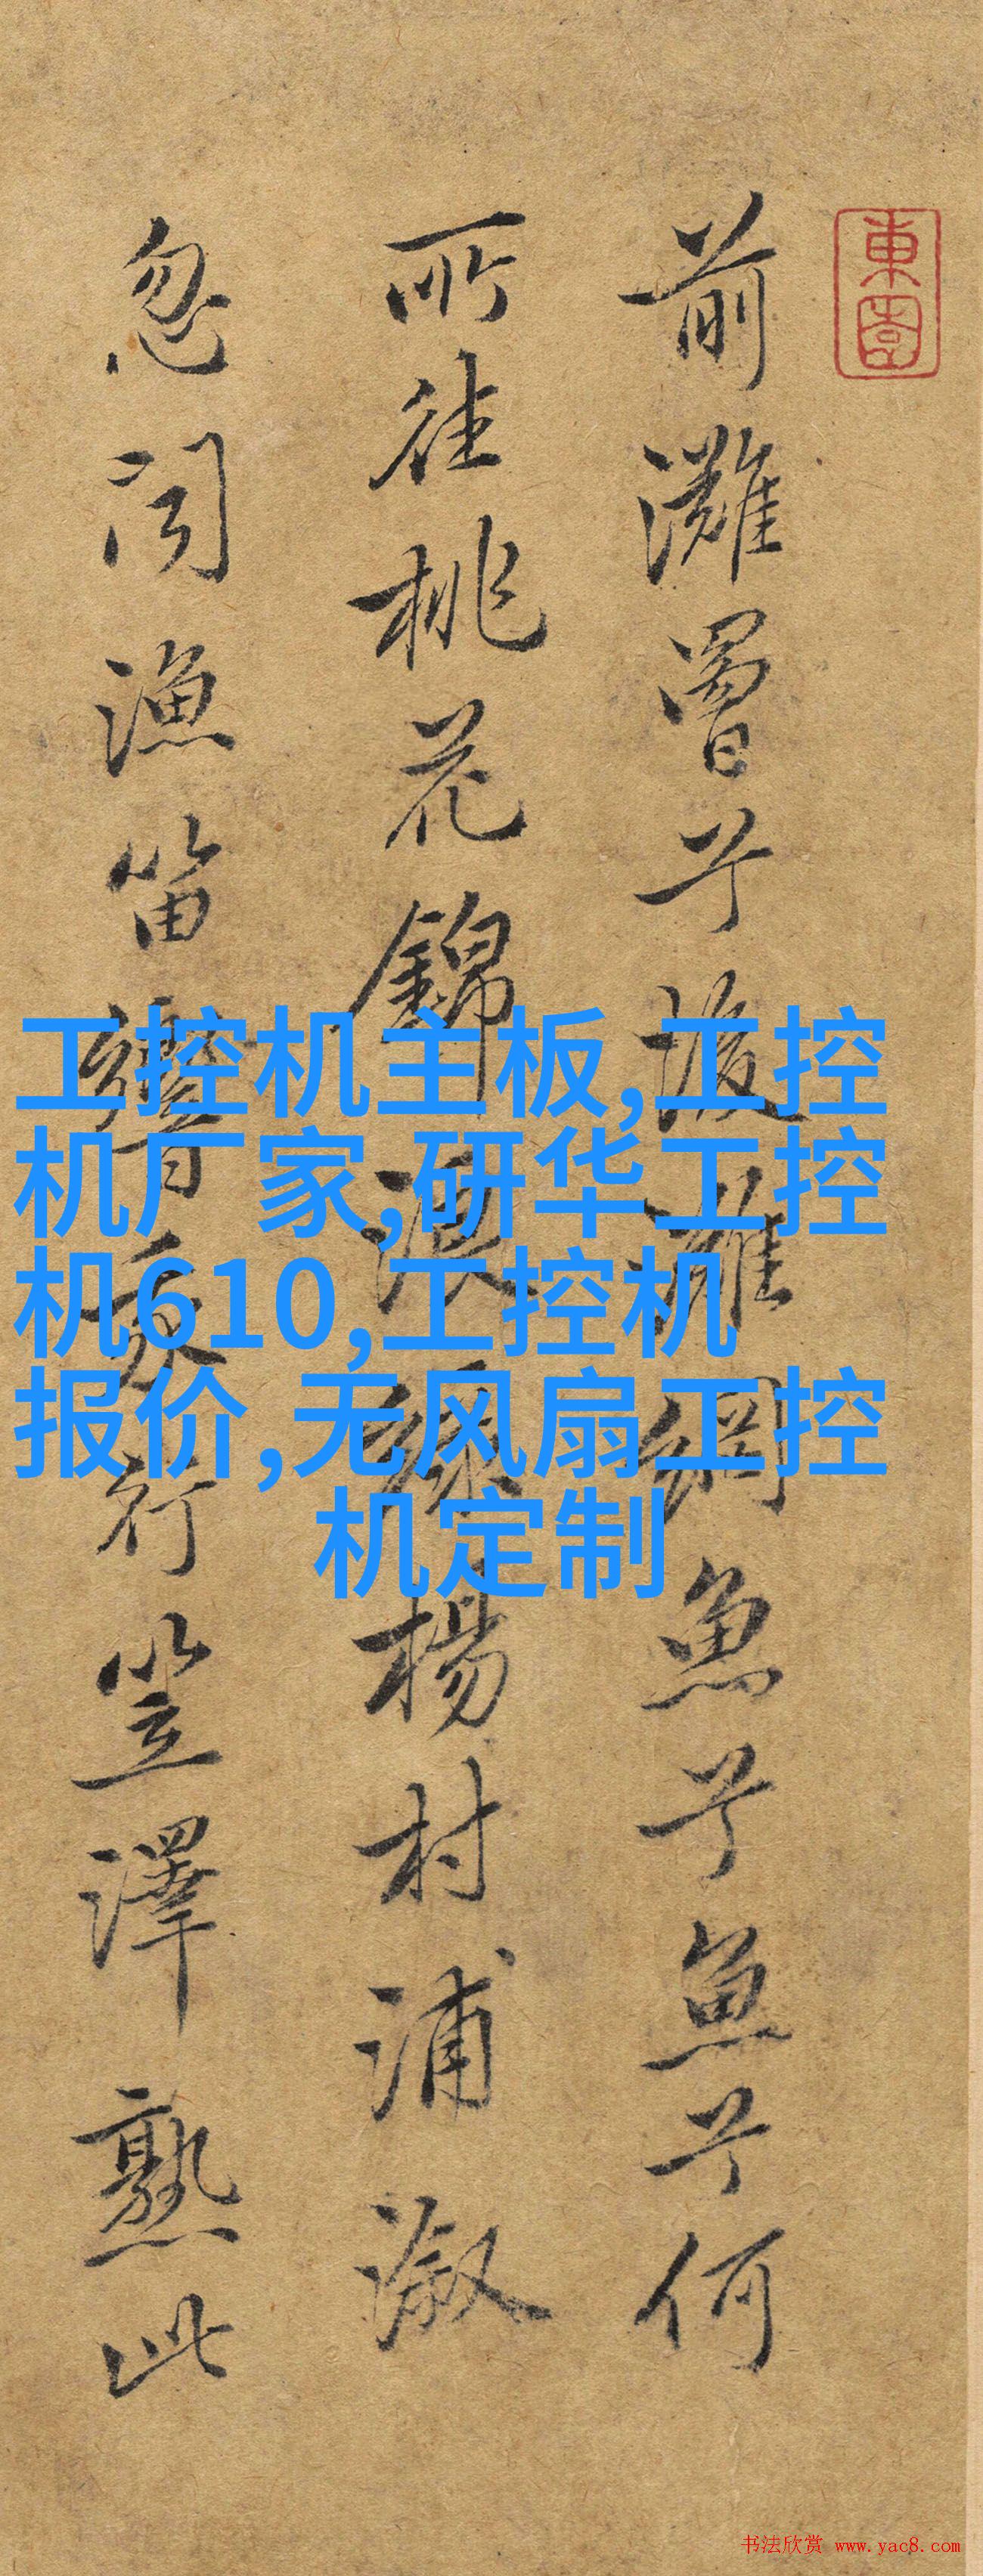 東
前灘罾兮後灘網魚兮魚兮何
所往桃花錦浪綠楊村浦溆
忽聞漁笛響行笠澤熟此
工控机主板,工控
机厂家,研华工控
机610,工控机
报价,无风扇工控
机定制
书法欣赏 www.yac8.com